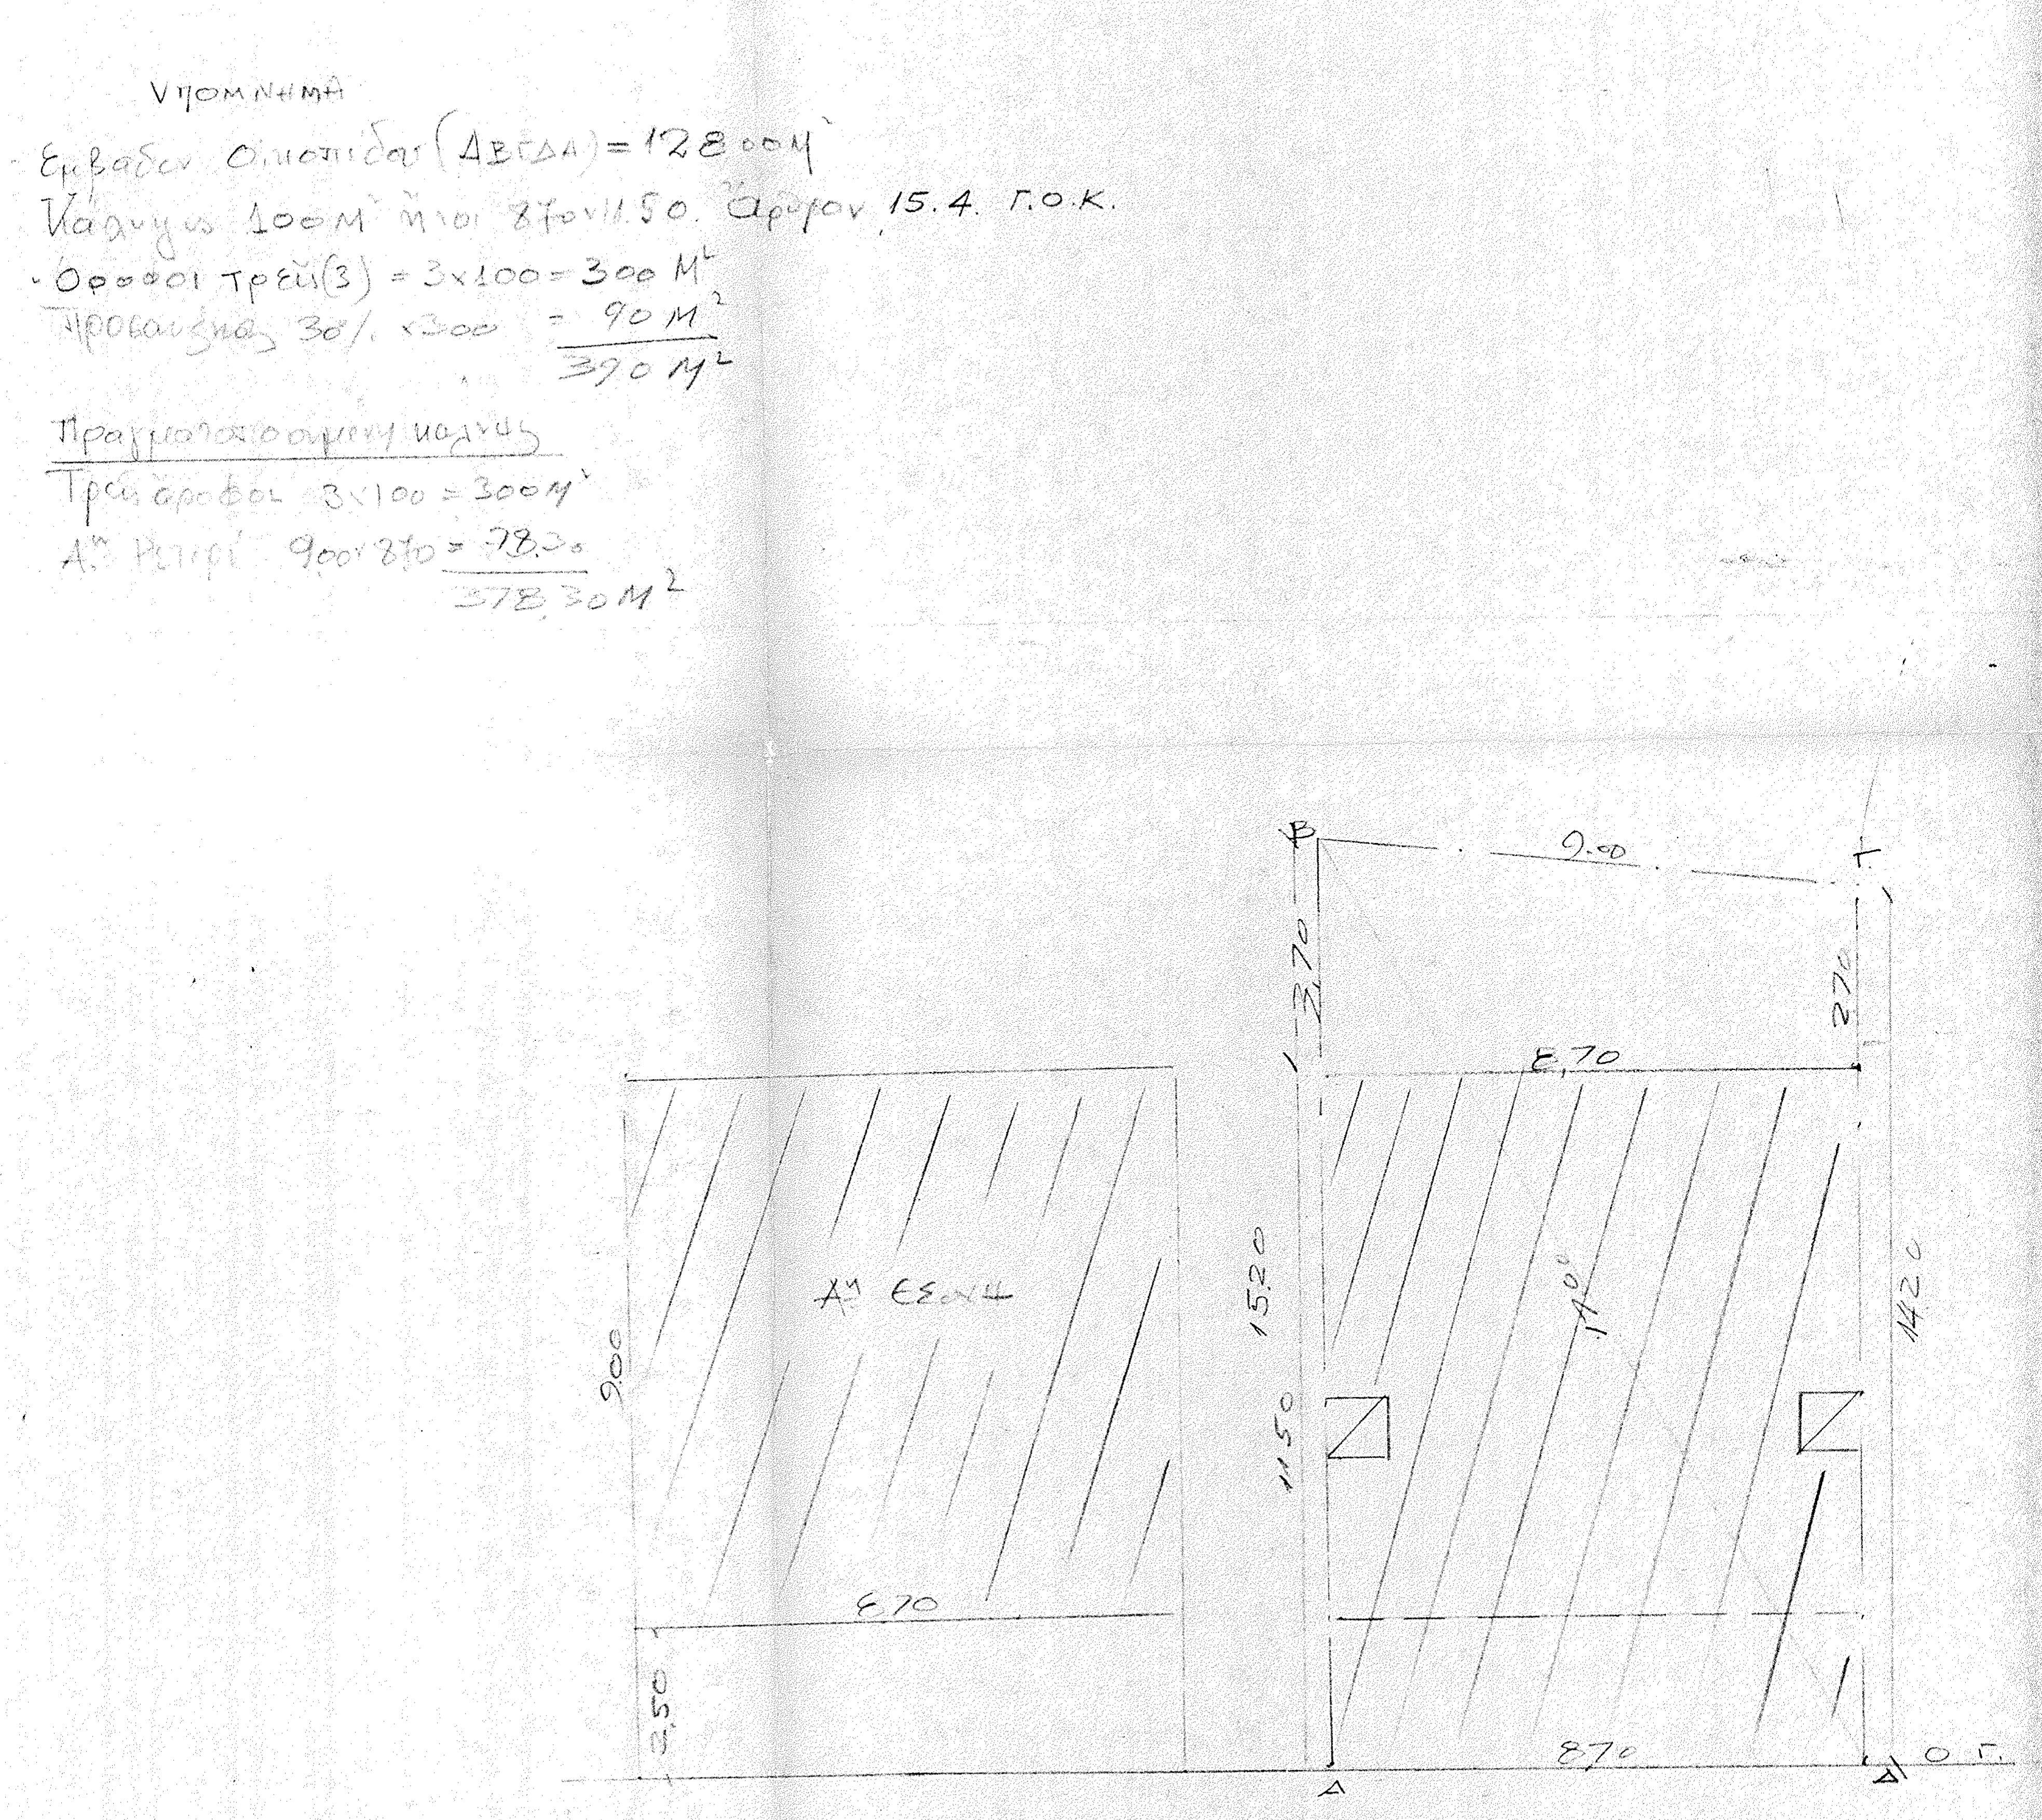 ΥΠΟΜΝΗΜΑ
Εμβαδόν Οικοπέδου (ΑΒΓΔΑ) = 128 00 Μ²
Κάλυψις 100 Μ² ήτοι 870 x 11.50. Άρθρον 15.4. Γ.Ο.Κ.
Όροφοι τρείς (3) = 3x100 = 300 Μ²
Προσαύξησις 30% x300 = 90 Μ²
390 Μ²
Πραγματοποιουμένη κάλυψις
Τρείς όροφοι 3x100 = 300 Μ²
Αη Ρετιρέ 900 x 870 = 78.30
378,30 Μ²
Β
9.00
Γ.
3,70
270
8,70
Αη ΕΣΟΧΗ
9.00
1520
1150
Α⁰⁰
1420
870
2,50
870
Ο Γ.
Α
Δ